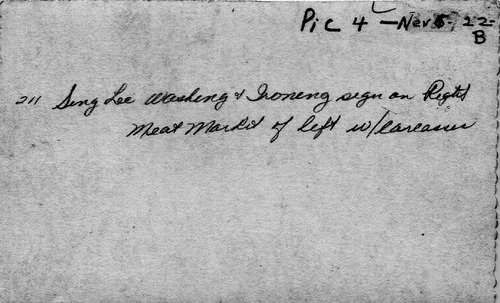 Pic 4 - Nev 5, 22-
B
211 Sing Lee Washing & Ironeng sign on Right
Meat Markit of left w/carcasses